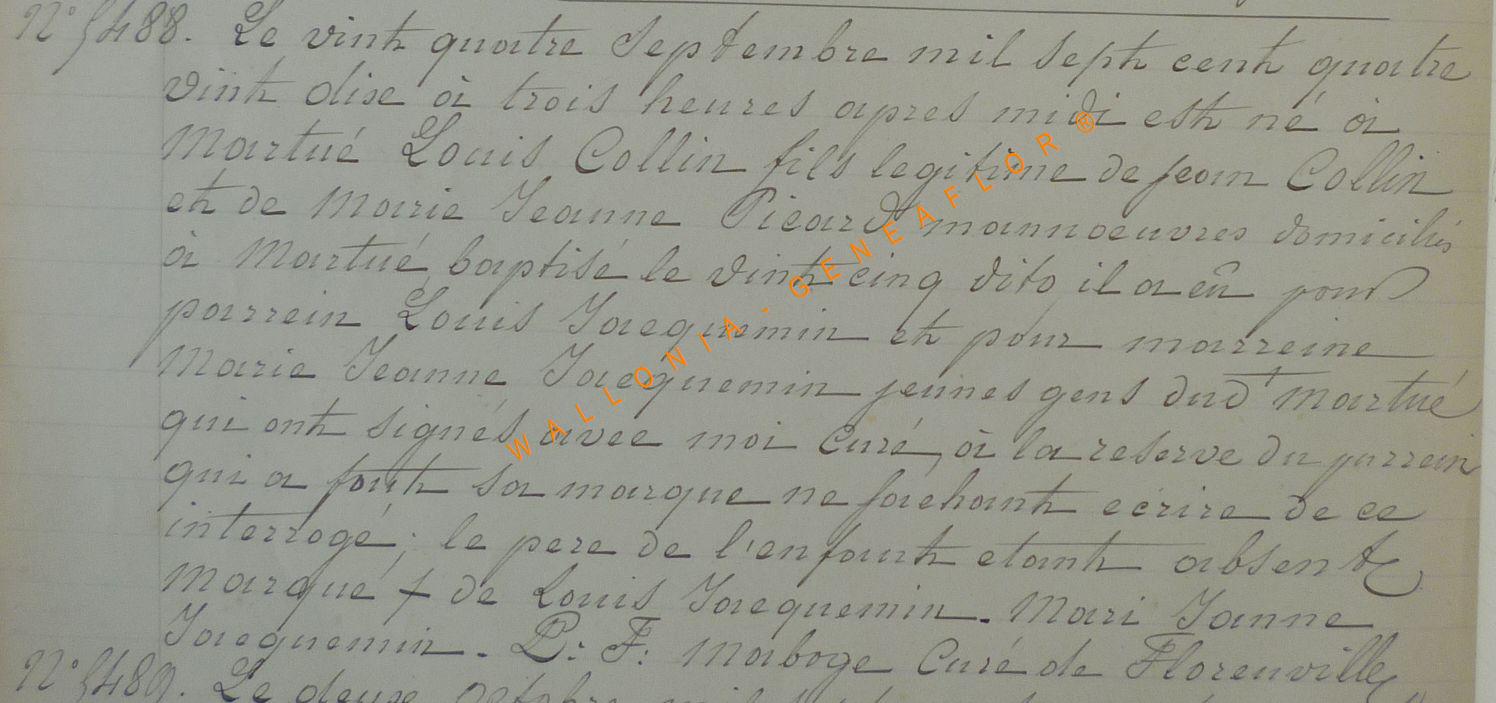 N° 5488. Le vint quatre Septembre mil sept cent quatre
vint dixe à trois heures apres midi est né à
Martué Louis Collin fils legitime de Jean Collin
et de Marie Jeanne Picard mannoeuvres domiciliés
à Martué, baptisé le vint cinq dito, il a eû pour
parrein Louis Jacquemin et pour marreine
Marie Jeanne Jacquemin jeunes gens dud't Martué
qui ont signés avec moi Curé, à la reserve du parrein
qui a fait sa marque ne sachant ecrire de ce
interrogé; le pere de l'enfant etant absent &
Marque + de Louis Jacquemin. Mari Janne
Jacquemin. P: F: Maboge Curé de Florenville
N° 5489. Le deuxe Octobre mil
WALLONIA-GENEAFLOR ®